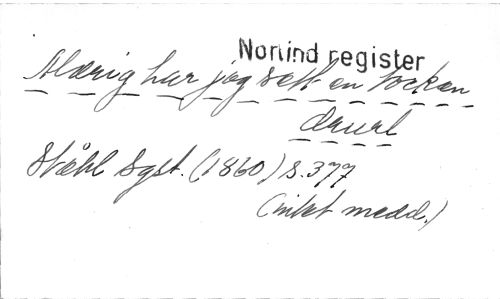 Nonind register
Aldrig har jag sett en tocken
druvl
Ståhl Syst. (1860) s. 377
(vikt medd.)